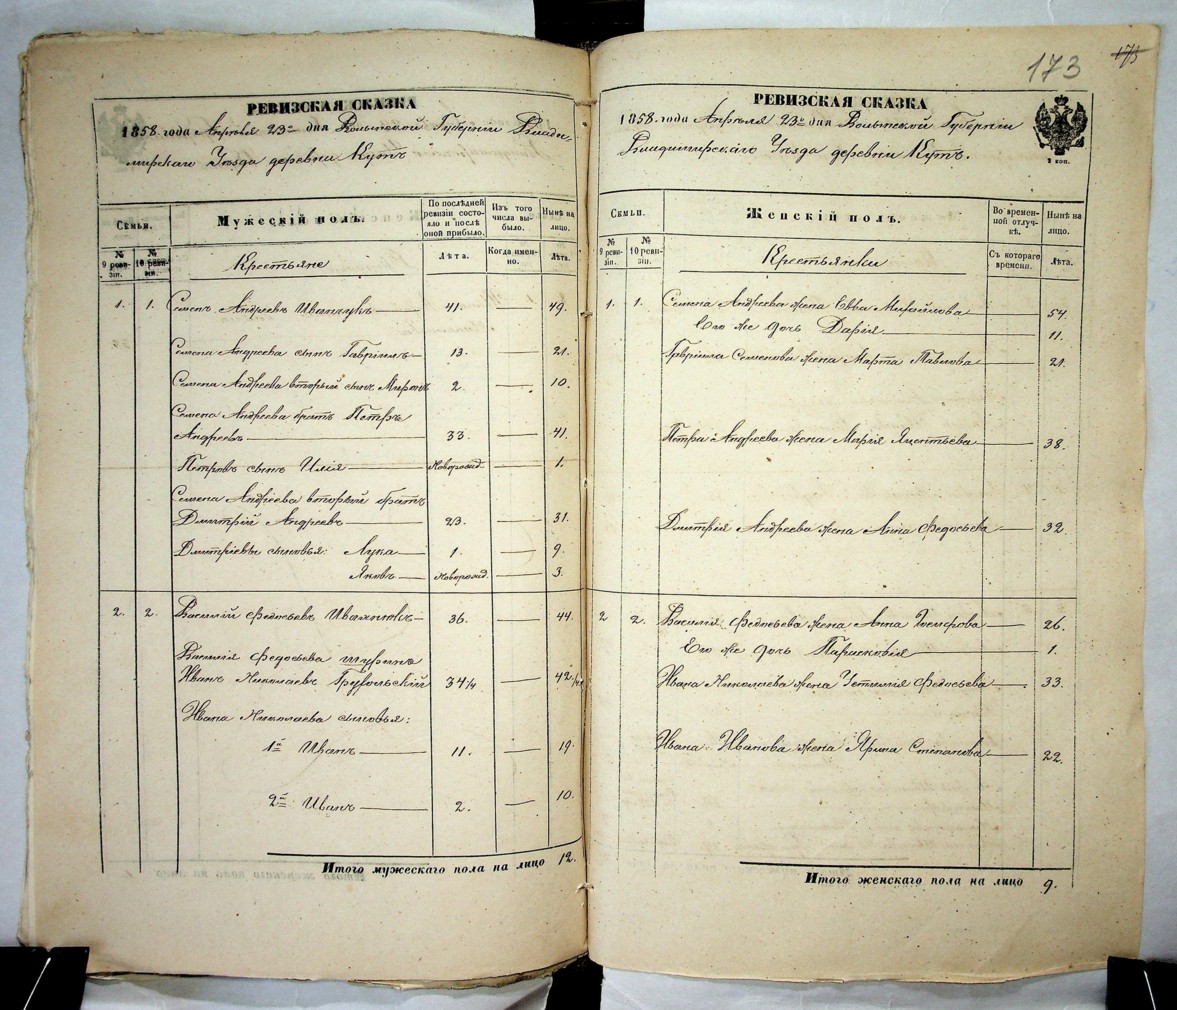 173
РЕВИЗСКАЯ СКАЗКА
1858 года Апрѣля 23го дня Волынской Губерніи Влади-
мирскаго Уѣзда деревни Кутъ
Семьи.
Мужескій полъ.
По послѣдней ревизіи состояло и послѣ оной прибыло.
Изъ того числа выбыло.
Нынѣ на лицо.
№ 9 ревизіи.
№ 10 ревизіи.
Крестьяне
Лѣта.
Когда именно.
Лѣта.
1. 1. Семенъ Андреевъ Иванчукъ 41. 49.
Семена Андреева сынъ Гавріилъ 13. 21.
Семена Андреева вторый сынъ Миронъ 2 10.
Семена Андреева братъ Петръ
Андреевъ 33. 41.
Петровъ сынъ Илія Новорожд. 1.
Семена Андреева вторый братъ
Дмитрій Андреевъ 23. 31.
Дмитріевы сыновья: Лука 1. 9.
Яковъ Новорожд. 3.
2. 2. Василій Федосьевъ 36. 44.
Василія Федосьева шуринъ
Иванъ Николаевъ 34¼ 42
Ивана Николаева сыновья:
1й Иванъ 11. 19.
2й Иванъ 2. 10.
Итого мужескаго пола на лицо 12.
РЕВИЗСКАЯ СКАЗКА
1858 года Апрѣля 23го дня Волынской Губерніи
Владимирскаго Уѣзда деревни Кутъ.
2 коп.
Семьи.
Женскій полъ.
Во временной отлучкѣ.
Нынѣ на лицо.
№ 9 ревизіи.
№ 10 ревизіи.
Крестьянки
Съ котораго времени.
Лѣта.
1. 1. Семена Андреева жена Евва Михайлова 54.
Его же дочь Дарія 11.
Гавріила Семенова жена Марта Павлова 21.
Петра Андреева жена Марія 38.
Дмитрія Андреева жена Анна Федосьева 32.
2 2. Василія Федосьева жена Анна 26.
Его же дочь Парасковія 1.
Ивана Николаева жена Устинія Федосьева 33.
Ивана Иванова жена Ярина Степанова 22.
Итого женскаго пола на лицо 9.